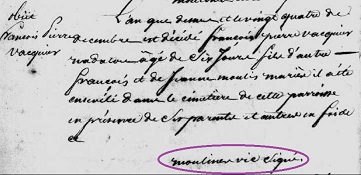 obiit
francois Pierre
vacquier
L'an que dessus et le vingt quatre de
decembre est décédé francois pierre vacquier
nadavare âgé de six Jours fils d'autre
francois et de Jeanne moulis mariés il a été
enterré dans le cimetière de cette parroisse
en présence de ses parents et autres en foi de
ce
moulines vic signé.